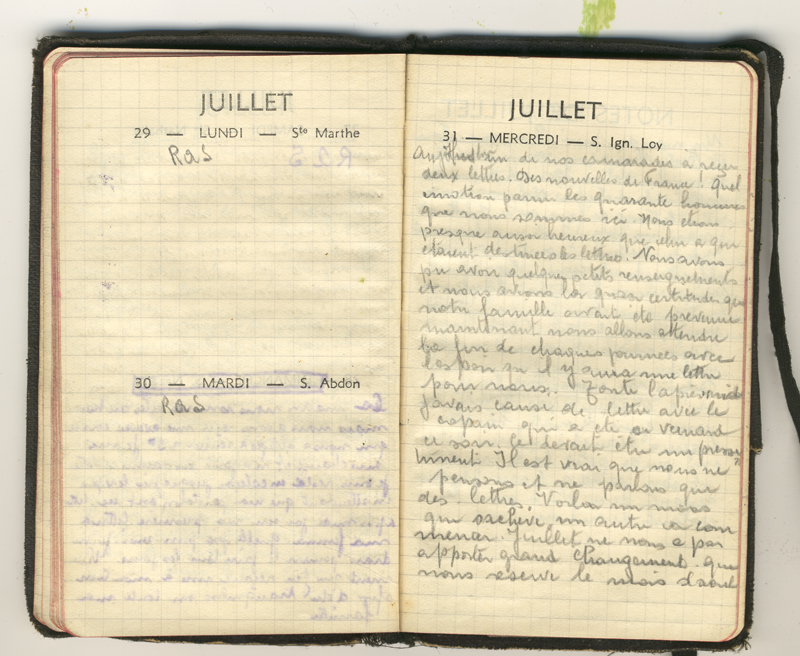 JUILLET
29 — LUNDI — Ste Marthe
RaS
30 — MARDI — S. Abdon
RaS
JUILLET
31 — MERCREDI — S. Ign. Loy
un de nos camarades a reçu
deux lettres. Des nouvelles de France! Quel
émotion parmi les quarante hommes
que nous sommes ici. Nous étions
presque aussi heureux que celui a qui
étaient destinées les lettres. Nous avons
pu avoir quelques petits renseignements
et nous avions la quasi certitude que
notre famille avait été prévenue
maintenant nous allons attendre
la fin de chaques journées avec
l'espoir qu'il y aura une lettre
pour nous. Toute l'après midi
j'avais causé de lettre avec le
copain qui a été si veinard
ce soir. Ce devait être un pressen
timent. Il est vrai que nous ne
pensons et ne parlons que
des lettres. Voila un mois
qui s'achève, un autre va com
mencer. Juillet ne nous a pas
apporter grand changement. Que
nous réserve le mois d'août